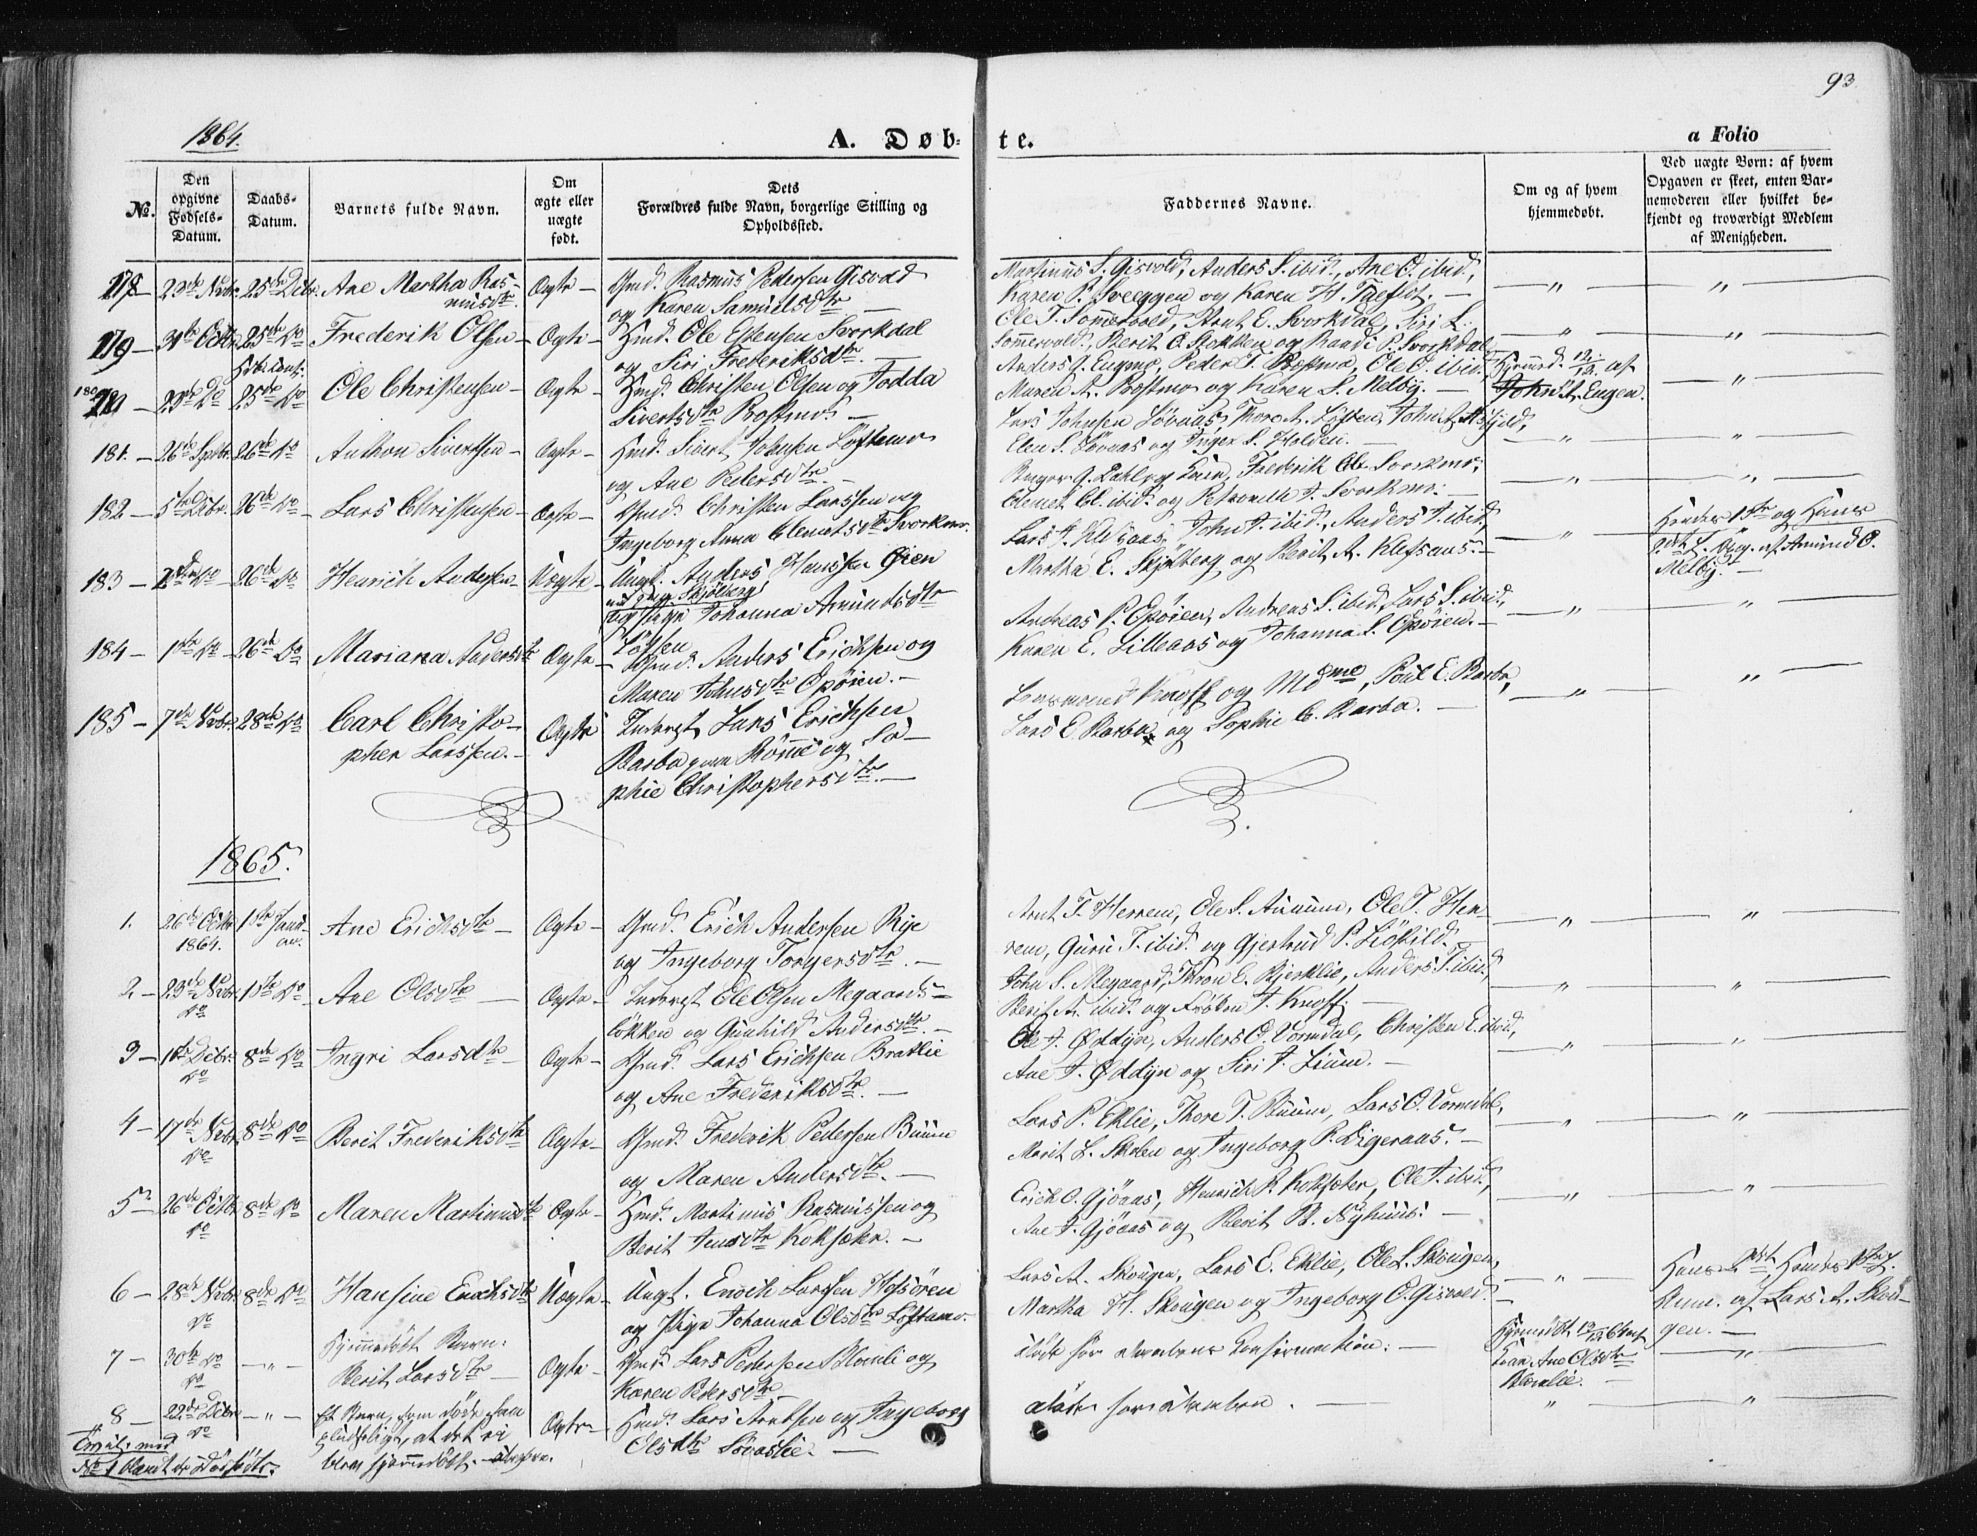 93
1864.
A. Døb-
te.
a Folio
No.
Den opgivne Fødsels-Datum.
Daabs-Datum.
Barnets fulde Navn.
Om ægte eller uægte født.
Dets Forældres fulde Navn, borgerlige Stilling og Opholdssted.
Faddernes Navne.
Om og af hvem hjemmedøbt.
Ved uægte Born: af hvem Opgaven er skeet, enten Barnemoderen eller hvilket bekjendt og troværdigt Medlem af Menigheden.
178 — 23de Nvbr. 25de Dcbr. Ane Martha Ras-
musdtr. Ægte —
Gmd. Rasmus Pedersen Gisvold
og Karen Samuelsdtr —
Martinus S. Gisvold, Anders S. ibid., Ane O. ibid.,
Karen P. Sveeggen og Karen H.
179 — 25de Do Frederik Olsen — Ægte —
Hmd. Ole Estensen Svorkdal
og Siri Frederiksdtr. —
Ole T. Sommervold, Arnt E. Svorkdal, Siri L.
Sommervold, Berit O. Stokken og Randi P. Svorkdal
180 — 23de Do 25de Do Ole Christensen — Ægte —
Hmd. Christen Olsen og Todda
Sivertsdtr Bostmo —
Peder T. Bostmo, Ole O. ibid.
Maren A. Bostmo og Karen S. Melby. —
John A. Engen.
181. — 26de Sptbr. 26de Do Anthon Sivertsen — Ægte —
Hmd. Sivert Johnsen Løftamo
og Ane Pedersdtr. —
Lars Johnsen Løvaas, Thore A. Løften,
Elen S. Løvaas og Inger S. Holden. —
182 — 5te Dcbr. 26de Do Lars Christensen — Ægte —
Gmd. Christen Larssen og
Ingeborg Anna Clemetsdtr Svorkmo.
Frederik Cl. Svorkmo,
Clemet Cl. ibid. og Petronelle J. Svorkmo. —
183 — 2den Do 26de Do Henrich Andersen — Uægte —
Ungk. Anders Hanssen Øien
Skjølberg
og Pige Johanna Amundsdtr
Løften
Lars A. Klefsaas, John A. ibid., Anders A. ibid.,
Martha E. Skjølberg og Berit A. Klefsaas. —
Hendes 1ste og Hans
af Amund O.
Melby. —
184 — 1ste Do — 26de Do Mariana Andersdtr Ægte —
Gmd. Anders Erichsen og
Maren Johnsdtr Opøien. —
Andreas P. Opøien, Andreas S. ibid., Lars S. ibid.,
Karen E. Lilleaas og Johanna L. Opøien. —
185 — 7de Nvbr. 28de Do Carl Christo-
pher Larssen. — Ægte
Inderst Lars Erichsen
Barbo paa Rømme og So-
phie Christophersdtr. —
Lensmand Knoff og Mdme, Poul E. Barbo,
Lars E. Barbo og Sophie C. Barbo. —
1865.
1. 26de Octbr. 1864. 1ste Janu-
ar. Ane Erichsdtr — Ægte —
Gmd. Erich Andersen Rye
og Ingeborg Torgersdtr. —
Arnt T. Herrem, Ole S. Aunum, Ole T. Her-
rem, Guru T. ibid. og Gjertrud P. Liøkild.
2 — 23de Nvbr. Do 1ste Do Ane Olsdtr — Ægte —
Inderst Ole Olsen Megaards-
løkken og Gunhild Andersdtr. —
John S. Megaard, Thron E. Bjerklie, Anders T. ibid.,
Berit A. ibid. og Frøken J. Knoff. —
3 — 1ste Dcbr. Do 8de Do Ingri Larsdtr — Ægte —
Gmd. Lars Erichsen Bratlie
og Ane Frederiksdtr. —
Ole J. Øddyn, Anders O. Vormdal, Christen E. ibid.,
Ane J. Øddyn og Siri A. Lium. —
4 — 17de Nvbr. Do 8de Do Berit Frederiksdtr Ægte —
Gmd. Frederik Pedersen Buum
og Maren Andersdtr. —
Lars P. Eklie, Thore T. Buum, Lars O. Vormdal,
Marit L. Skolen og Ingeborg P. Digeraas. —
5 — 26de Octbr. Do 8de Do Maren Martinusdtr Ægte —
Hmd. Martinus Rasmussen og
Berit Jensdtr Kolsæter. —
Erick O. Gjøaas, Henrich P. Kolsæter, Ole A. ibid.,
Ane J. Gjøaas og Berit B. Nyhuus. —
6 — 28de Nvbr. Do 8de Do Hansine Enochsdtr Uægte —
Ungk. Enoch Larssen Hofsøren
og Pige Johanna Olsdtr Løftamo.
Lars A. Skougen, Lars E. Eklie, Ole L. Skougen,
Martha H. Skougen og Ingeborg O. Gisvold.
Hans 2det, Hendes 1ste L.
Anm. af Lars A. Skou-
gen. —
7 — 30te Do Do — „ —
Hjemmedøbt Barn:
Berit Larsdtr — Ægte —
Gmd. Lars Pedersen Blomli og
Karen Pedersdtr —
døde før Daabens Confirmation. —
Ane Olsdtr
Blomlie. —
8 — 22de Dcbr. Do — „ —
Et Barn, som døde saa
pludselig, at det ei
blev hjemmedøbt. — Ægte —
Hmd. Lars Arntsen og Ingeborg
Olsdtr Løvaslie —
døde før Daaben. —
No 1 blandt de Dødfødte.